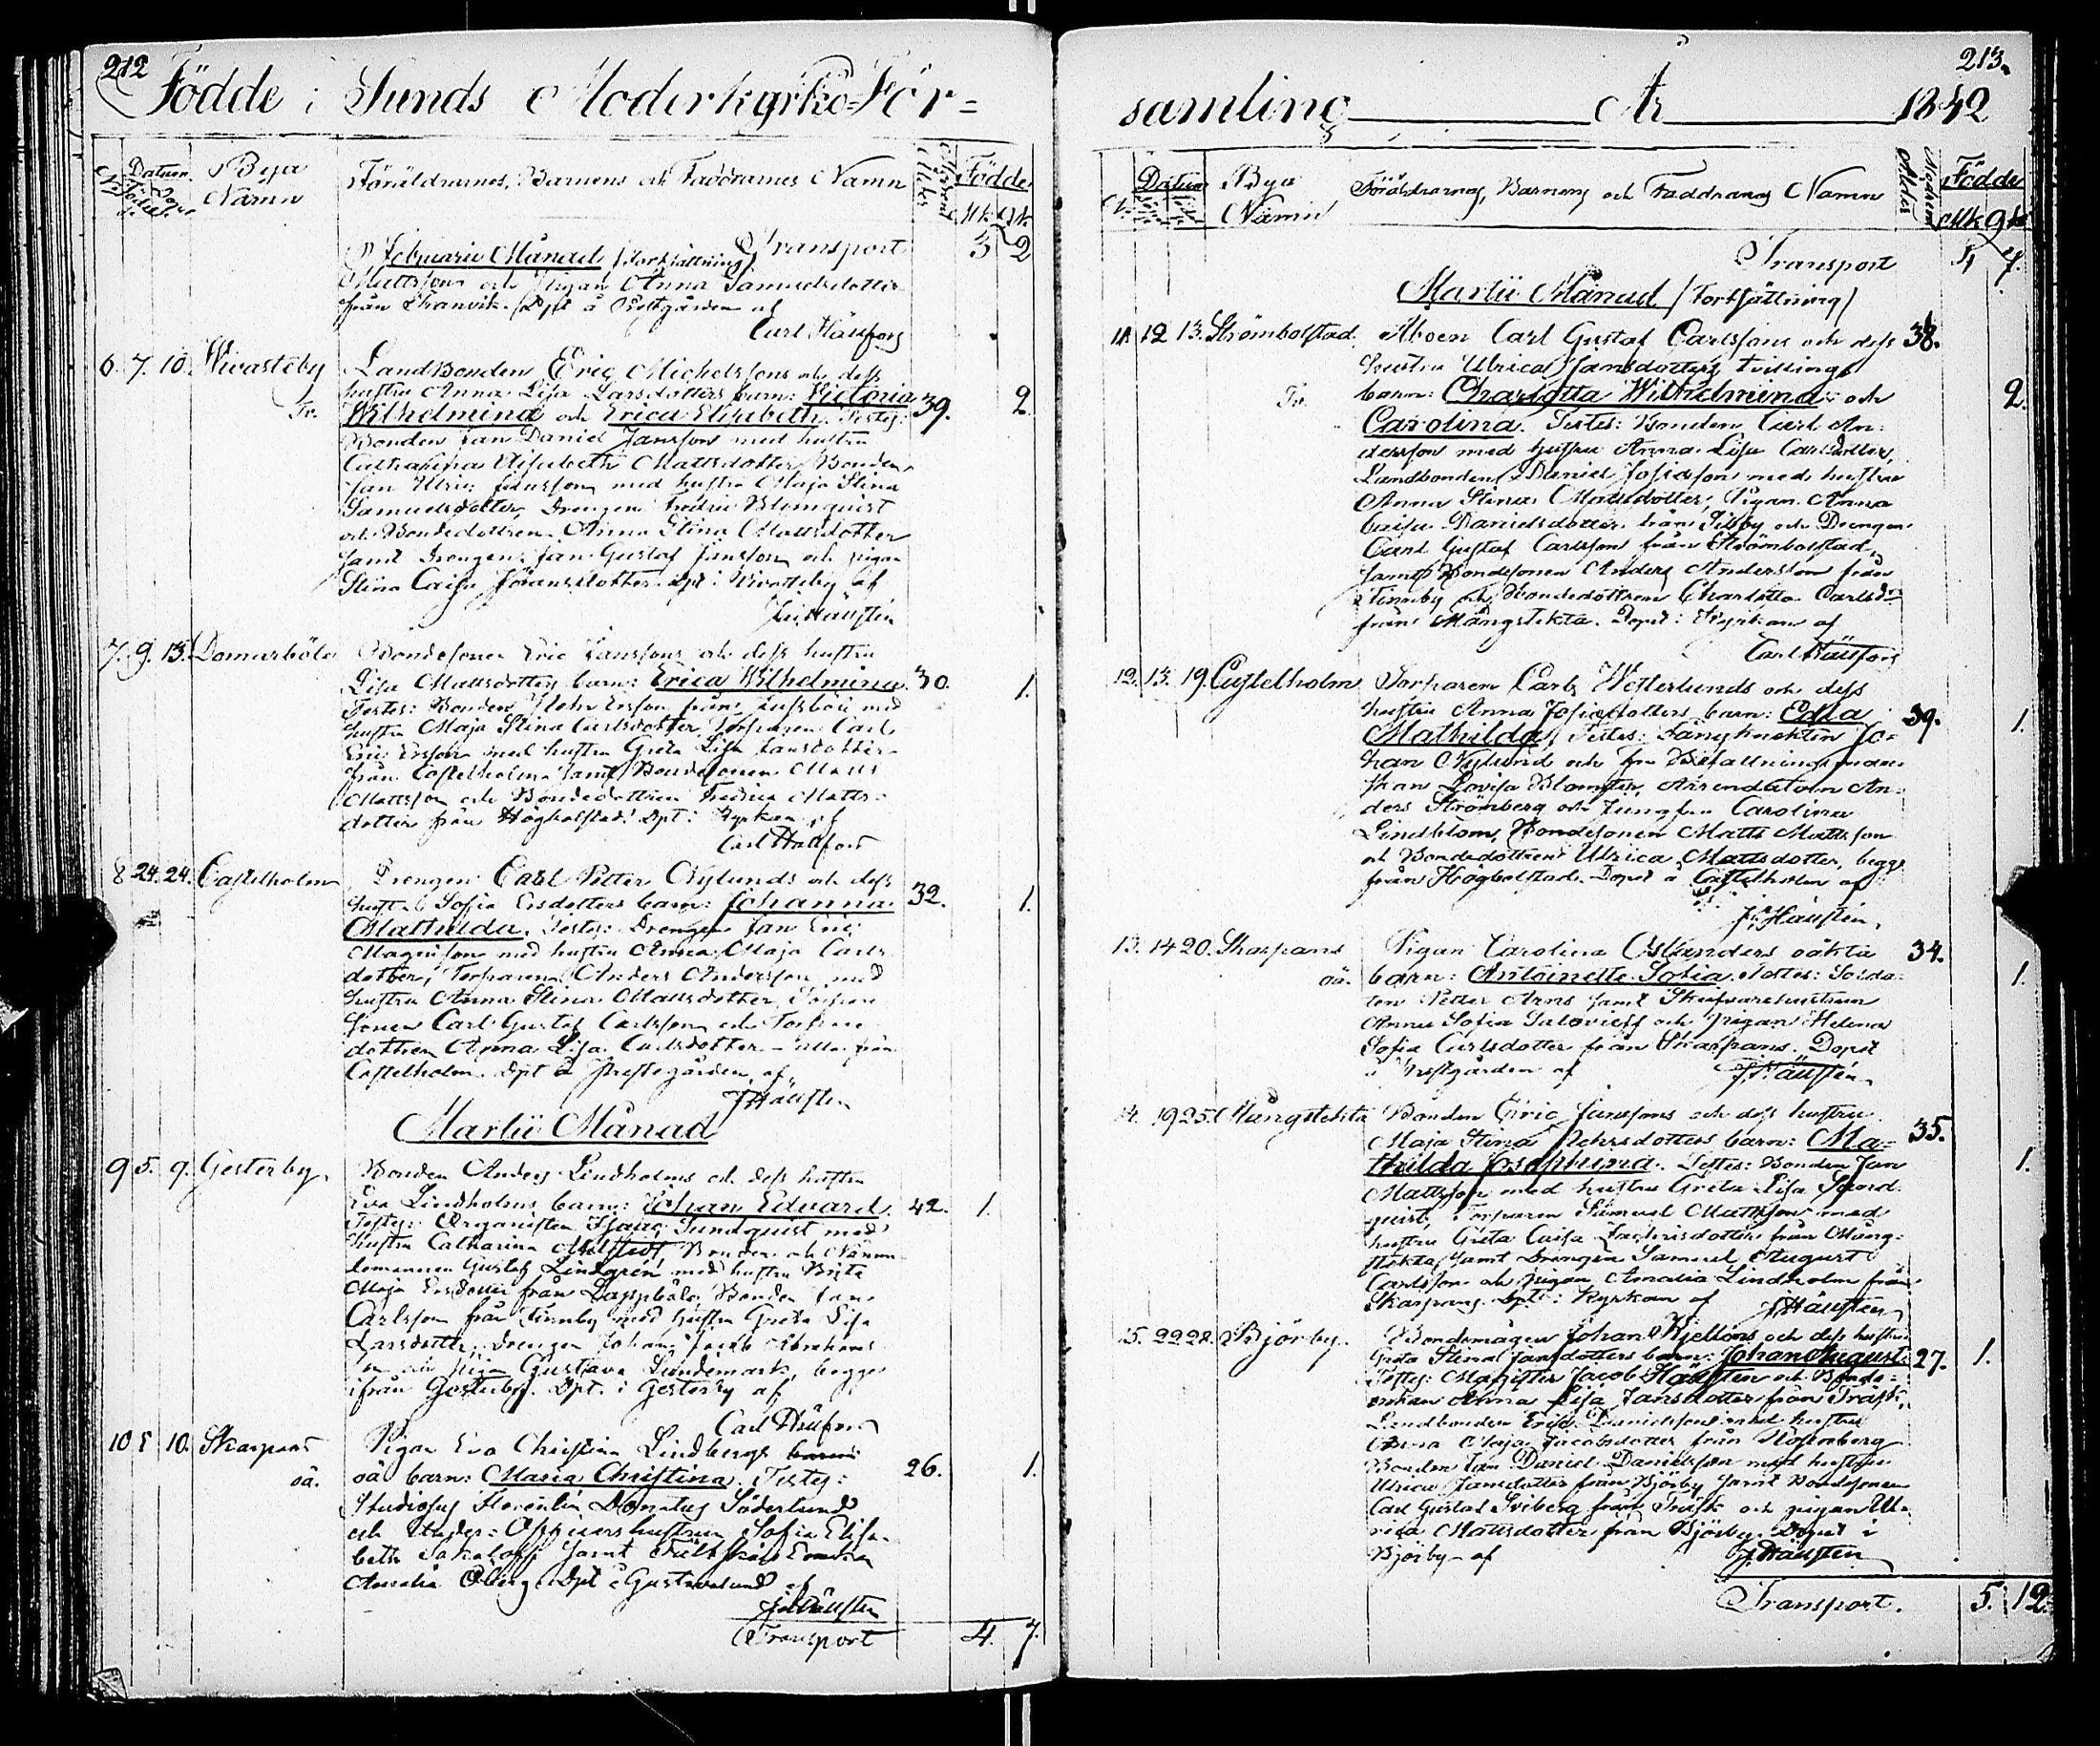 212
Födde i Sunds Moderkyrko-För=
No
Datum
Bya Namn
Föräldrarnes, Barnens och Faddrarnes Namn
Födde
Mk. Qk.
Februarii Månad (Fortsättning) Transport 3 2
Mattssons och Pigan Anna Samuelsdotter
från Tranvik. Dpt å Prestgården af
Carl Häusfors
6. 7. 10. Wivasteby Landbonden Eric Michelssons och dess
hustru Anna Lisa Larsdotters barn: Victoria 39. 2.
Tv. Wilhelmina och Erica Elisabeth. Testes:
Bonden Jan Daniel Jansson med hustru
Catharina Elisabeth Mattsdotter, Bonden
Jan Ulric Jansson med hustru Maja Stina
Samuelsdotter, Drengen Fredric Blomquist
och Bondedottren Anna Stina Mattsdotter
samt Drengen Jan Gustaf Jansson och pigan
Stina Caisa Göransdotter. Dpt i Wivasteby af
J. Häusten
7. 9. 13. Domarböle Bondesonen Eric Janssons och dess hustru
Lisa Mattsdotters barn: Erica Wilhelmina. 30. 1.
Testes: Bonden Ersson från med
hustru Maja Stina Carlsdotter, Torparen Carl
Eric Ersson med hustru Greta Lisa Jansdotter
från Castelholm samt Bondesonen Matts
Mattsson och Bondedottren Fredrica Matts-
dotter från Högbolstad. Dpt i Kyrkan af
Carl Häusfors
8 24. 24. Castelholm Drengen Carl Petter Nylunds och dess
hustru Sofia Ersdotters barn: Johanna 32. 1.
Mathilda. Testes: Drengen Jan Eric
Magnusson med hustru Anna Maja Carls
dotter, Torparen Anders Andersson med
hustru Anna Stina Mattsdotter, Torpare
sonen Carl Gustaf Carlsson och Torpare
dottren Anna Lisa Carlsdotter - alla från
Castelholm. Dpt å Prestgården af
J. Häusten
Martii Månad
9 5. 9. Gesterby. Bonden Anders Lindholms och dess hustru
Eva Lindholms barn: Johan Eduard. 42. 1.
Testes: Organisten Isaac Sundquist med
hustru Catharina Bonden och Nämn
demannen Gustaf Lindgrén med hustru Brita
Maja Ersdotter från Lappböle, Bonden Jan
Carlsson från Finnby med hustru Greta Lisa
Larsdotter, Drengen Johan Jacob Abrahams
son och pigan Gustava Sundemark, begge
ifrån Gesterby. Dpt. i Gesterby af
Carl Häusfors
10 5 10. Skarpans Pigan Eva Christina Lindbergs barn:
oä. oä barn: Maria Christina. Testes: 26. 1.
Studiosus Florentin Donatus Söderlund
och Under-Officers hustrun Sofia Elisa-
beth Sakaloff samt
Amalia Öberg. Dpt å Gustavslund af
J. Häusten
Transport 4. 7.
213.
samling År 1842
Datum
Bya Namn
Föräldrarnas, Barnens och Faddrarnas Namn
Moderns Ålder
Födde
Mk Qk
Transport 4 7.
Martii Månad (Fortsättning)
11. 12 13. Strömbolstad. Åboen Carl Gustaf Carlssons och dess 38.
hustru Ulrica Jansdotters tvillings
Tv. barn: Charlotta Wilhelmina och 2.
Carolina. Testes: Bonden Carl An-
dersson med hustru Anna Lisa Carlsdotter,
Landbonden Daniel Josefsson med hustru
Anna Stina Mattsdotter, Pigan Anna
Caisa Danielsdotter från Tibby och Drengen
Carl Gustaf Carlsson från Strömbolstad,
samt Bondesonen Anders Andersson från
Finnby och Bondedottren Charlotta Carlsdr
från Mångstekta. Döpt i Kyrkan af
Carl Häusfors
12. 13. 19. Castelholm Torparen Carl Wetterlunds och dess
hustru Anna Josefsdotters barn: Edla 39. 1.
Mathilda. Testes: Fångknekten Jo-
han Nylund och Fru Befallningsman
skan Lovisa Blomster, Arrendatorn An-
ders Strömberg och Jungfru Carolina
Lindblom, Bondesonen Matts Mattsson
och Bondedottren Ulrica Mattsdotter, begge
från Högbolstad. Döpt å Castelholm af
J. Häusten
13. 14 20. Skarpans Pigan Carolina Oslanders oäkta 34.
oä. barn: Antoinette Sofia. Testes: Solda- 1.
ten Petter Arns samt Skepparehustrun
Anna Sofia och pigan Helena
Sofia Carlsdotter från Skarpans. Döpt
å Prestgården af J. Häusten
14. 19 25. Mångstekta Bonden Eric Janssons och dess hustru
Maja Stina Pehrsdotters barn: Ma- 35.
thilda Josephina. Testes: Bonden Jan 1.
Mattsson med hustru Greta Lisa
quist, Torparen Samuel Mattsson med
hustru Greta Caisa Zachrisdotter från Mång-
stekta, samt Drengen Samuel August
Carlsson och pigan Amalia Lindholm från
Skarpans. Dpt i Kyrkan af J. Häusten
15. 22 28. Björby. Bondemågen Johan Kjelléns och dess hustru
Greta Stina Jansdotters barn: Johan August. 27. 1.
Testes: Magister Jacob Häusten och Bonde-
enkan Anna Lisa Jansdotter från Träsk,
Landbonden Eric Danielsson med hustru
Anna Maja Jacobsdotter från Rosenberg
Bonden Jan Daniel Danielsson med hustru
Ulrica Jansdotter från Björby samt Bondesonen
Carl Gustaf Sviberg från Träsk och pigan Ul-
rica Mattsdotter från Björby. Döpt i
Björby - af J. Häusten
Transport. 5. 12.